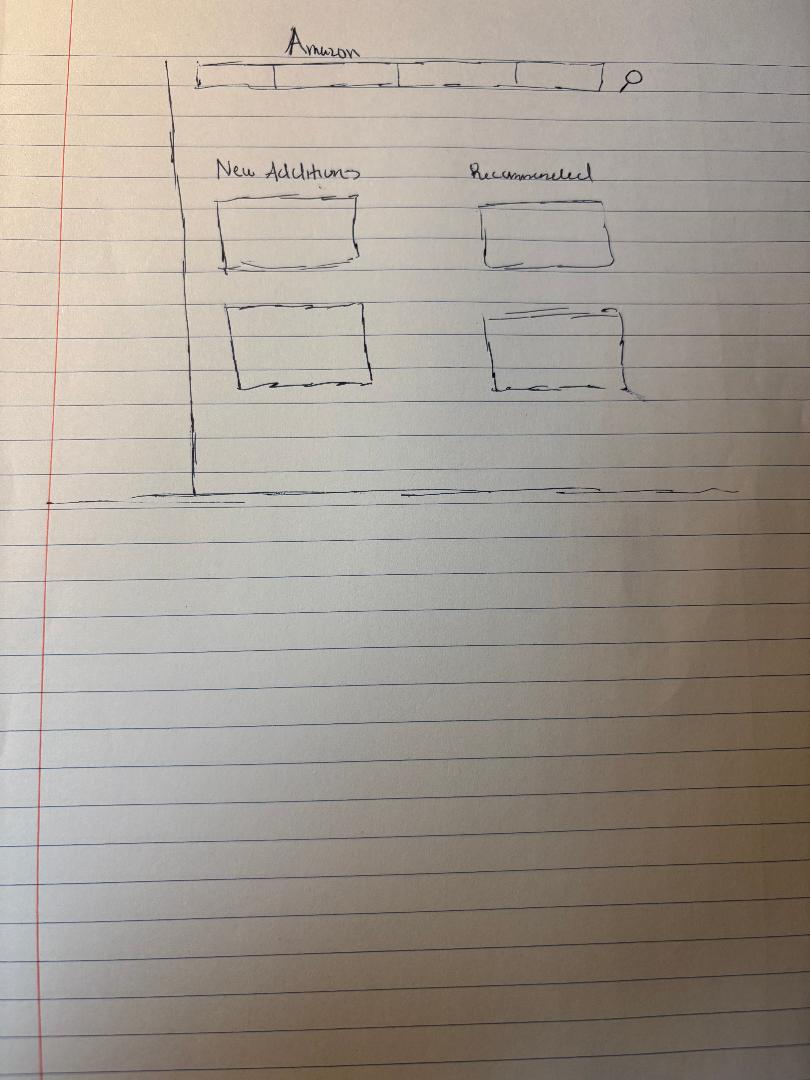 Amazon
New Additions
Recommended